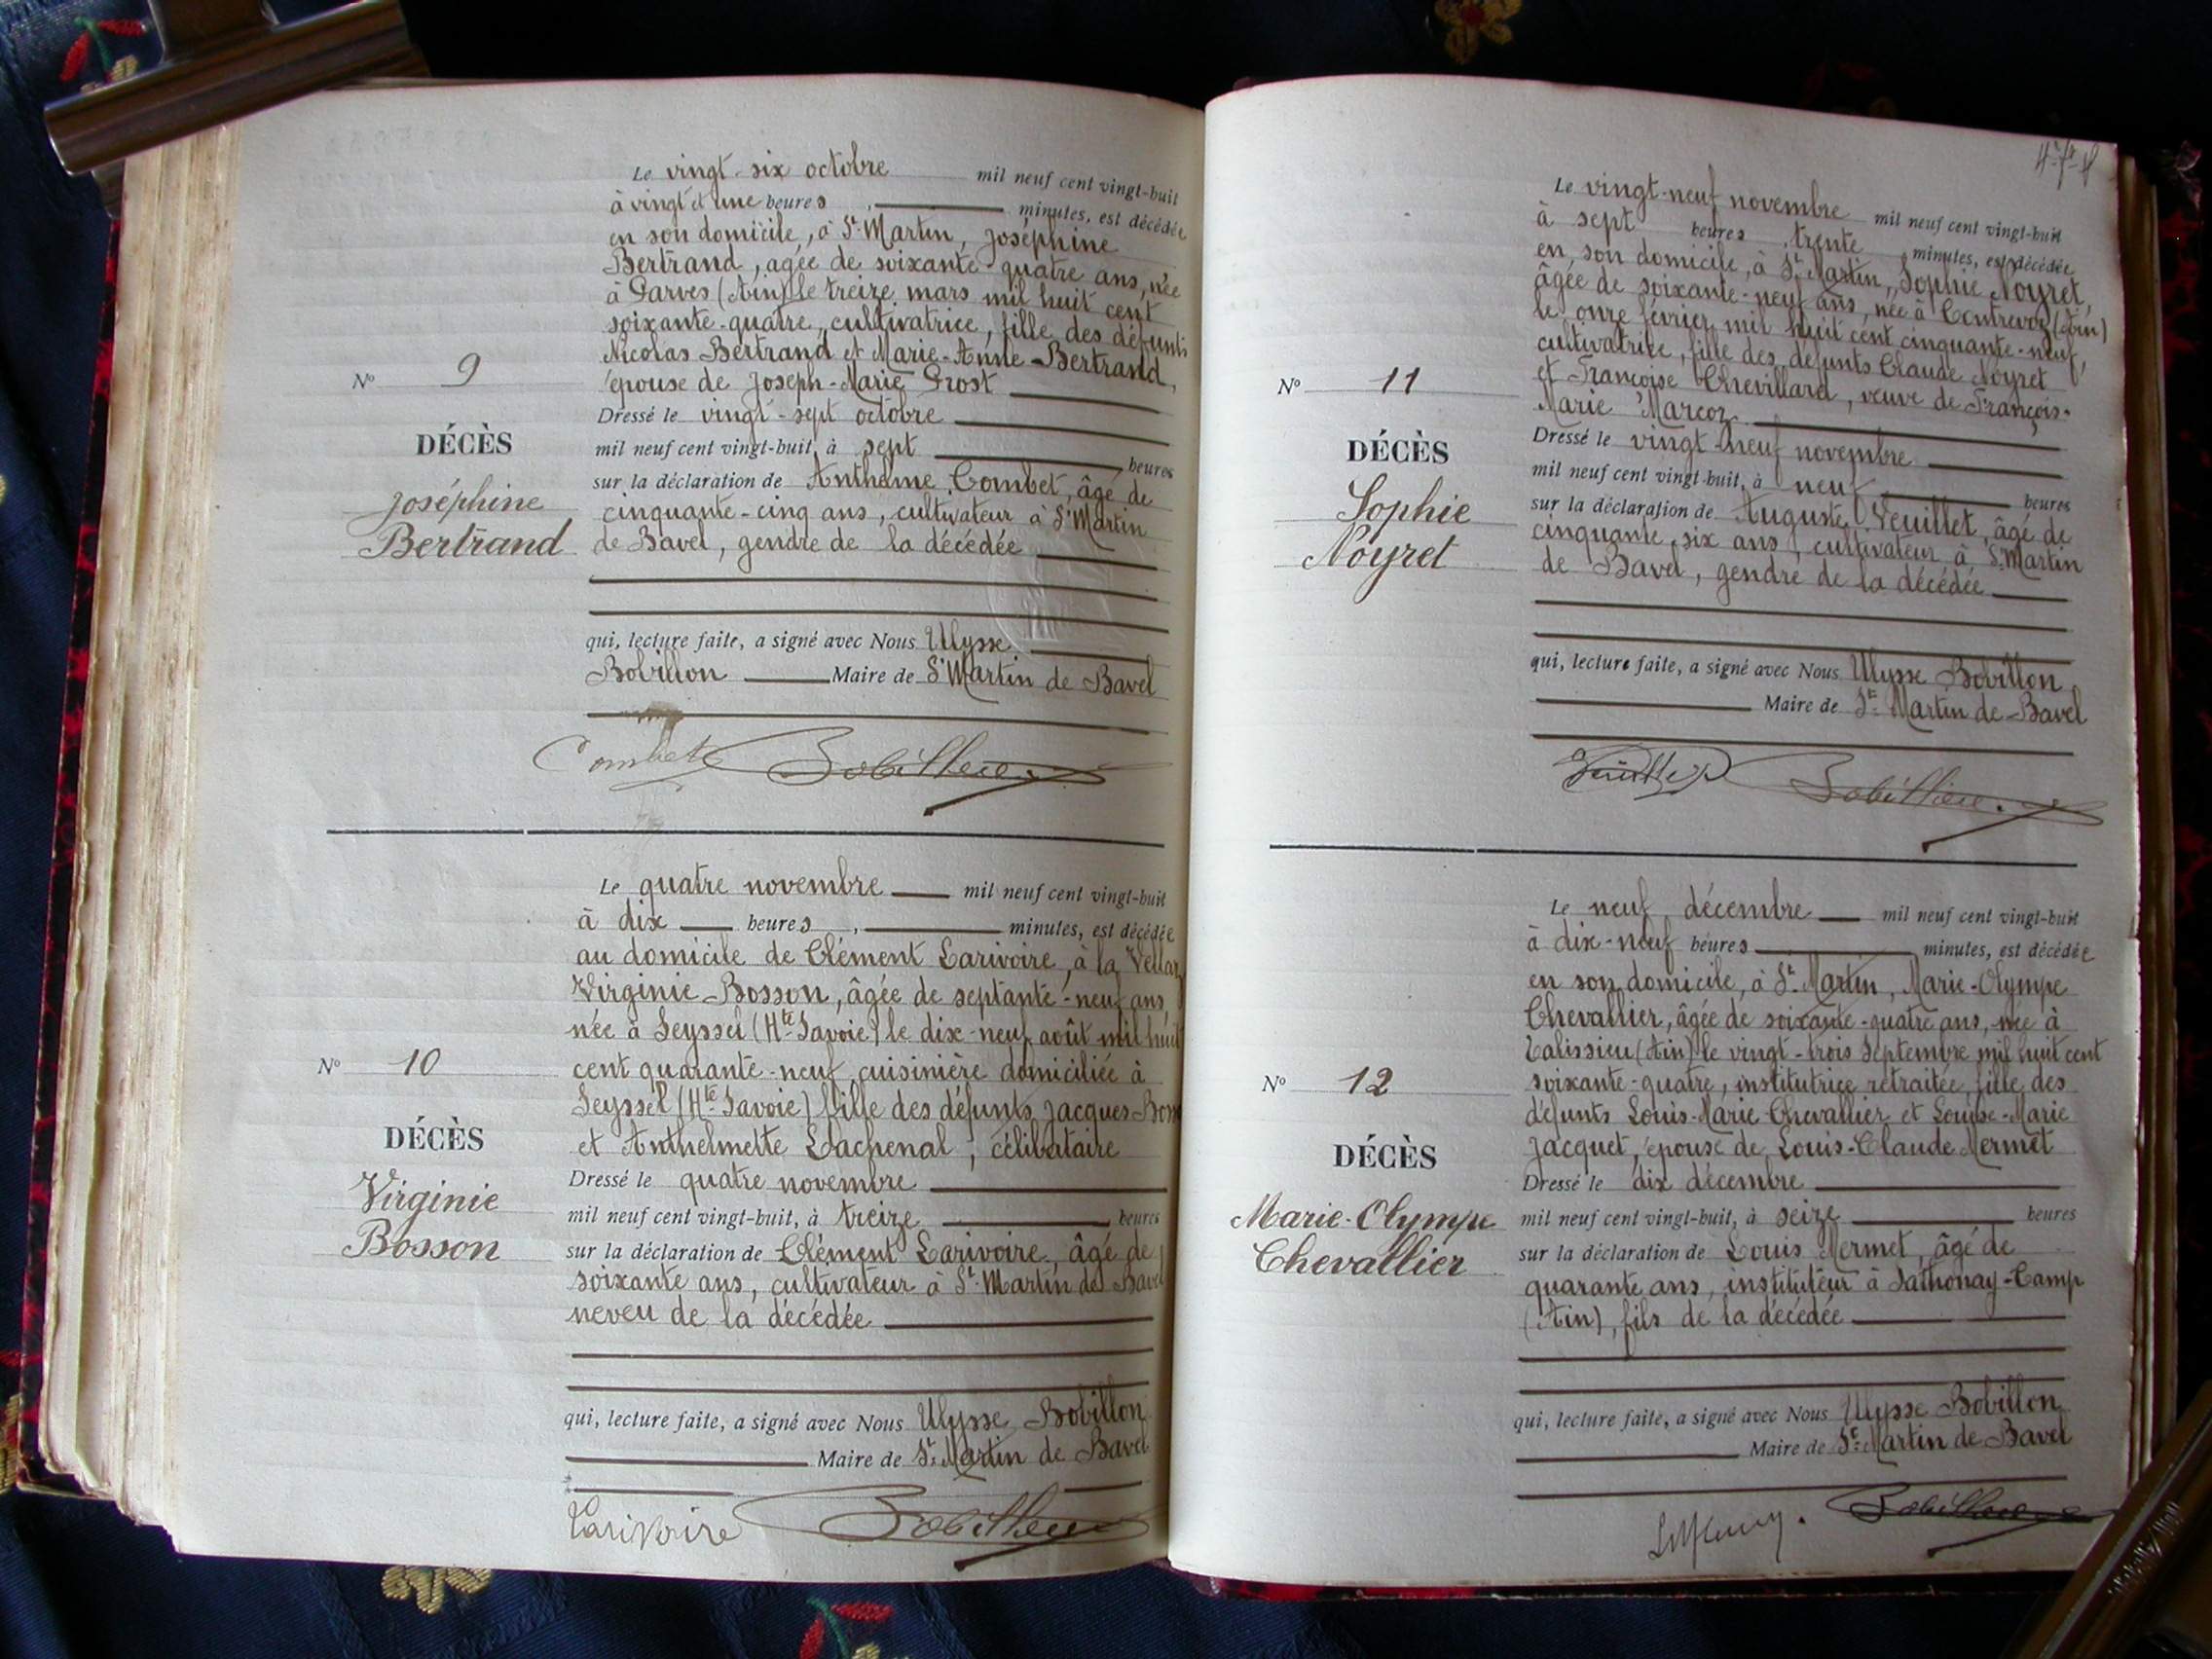 Le vingt-six octobre mil neuf cent vingt-huit
à vingt et une heures , minutes, est décédée
en son domicile, à St Martin, Joséphine
Bertrand, agée de soixante-quatre ans, née
à Parves (Ain) le treize mars mil huit cent
soixante-quatre, cultivatrice, fille des défunts
Nicolas Bertrand et Marie-Anne Bertrand,
épouse de Joseph-Marie Prost
Dressé le vingt-sept octobre
mil neuf cent vingt-huit, à sept heures
sur la déclaration de Anthelme Combet, âgé de
cinquante-cinq ans, cultivateur à St Martin
de Bavel, gendre de la décédée
qui, lecture faite, a signé avec Nous Ulysse
Bobillon Maire de St Martin de Bavel
Combet Bobillon
No 9
DÉCÈS
Joséphine
Bertrand
Le quatre novembre mil neuf cent vingt-huit
à dix heures , minutes, est décédée
au domicile de Clément Larivoire, à la Vellaz
Virginie Bosson, âgée de septante-neuf ans,
née à Seyssel (Hte Savoie) le dix-neuf août mil huit
cent quarante-neuf cuisinière domiciliée à
Seyssel (Hte Savoie) fille des défunts Jacques
et Anthelmette Lachenal, célibataire
Dressé le quatre novembre
mil neuf cent vingt-huit, à treize heures
sur la déclaration de Clément Larivoire, âgé de
soixante ans, cultivateur à St Martin de Bavel
neveu de la décédée
qui, lecture faite, a signé avec Nous Ulysse Bobillon
Maire de St Martin de Bavel
Larivoire Bobillon
No 10
DÉCÈS
Virginie
Bosson
Le vingt-neuf novembre mil neuf cent vingt-huit
à sept heures , trente minutes, est décédée
en son domicile, à St Martin, Sophie Noyret,
âgée de soixante-neuf ans, née à Contrevoz (Ain)
le onze février mil huit cent cinquante-neuf,
cultivatrice, fille des défunts Claude Noyret
et Françoise Chevillard, veuve de François-
Marie Marcoz
Dressé le vingt-neuf novembre
mil neuf cent vingt-huit, à neuf heures
sur la déclaration de Auguste Veuillet, âgé de
cinquante-six ans, cultivateur à St Martin
de Bavel, gendre de la décédée
qui, lecture faite, a signé avec Nous Ulysse Bobillon
Maire de St Martin de Bavel
Veuillet Bobillon
No 11
DÉCÈS
Sophie
Noyret
Le neuf décembre mil neuf cent vingt-huit
à dix-neuf heures minutes, est décédée
en son domicile, à St Martin, Marie-Olympe
Chevallier, âgée de soixante-quatre ans, née à
Talissieu (Ain) le vingt-trois Septembre mil huit cent
soixante-quatre, institutrice retraitée, fille des
défunts Louis-Marie Chevallier et Louise-Marie
Jacquet, épouse de Louis-Claude Mermet
Dressé le dix décembre
mil neuf cent vingt-huit, à seize heures
sur la déclaration de Louis Mermet, âgé de
quarante ans, instituteur à Sathonay-Camp
(Ain), fils de la décédée
qui, lecture faite, a signé avec Nous Ulysse Bobillon
Maire de St Martin de Bavel
Bobillon
No 12
DÉCÈS
Marie-Olympe
Chevallier